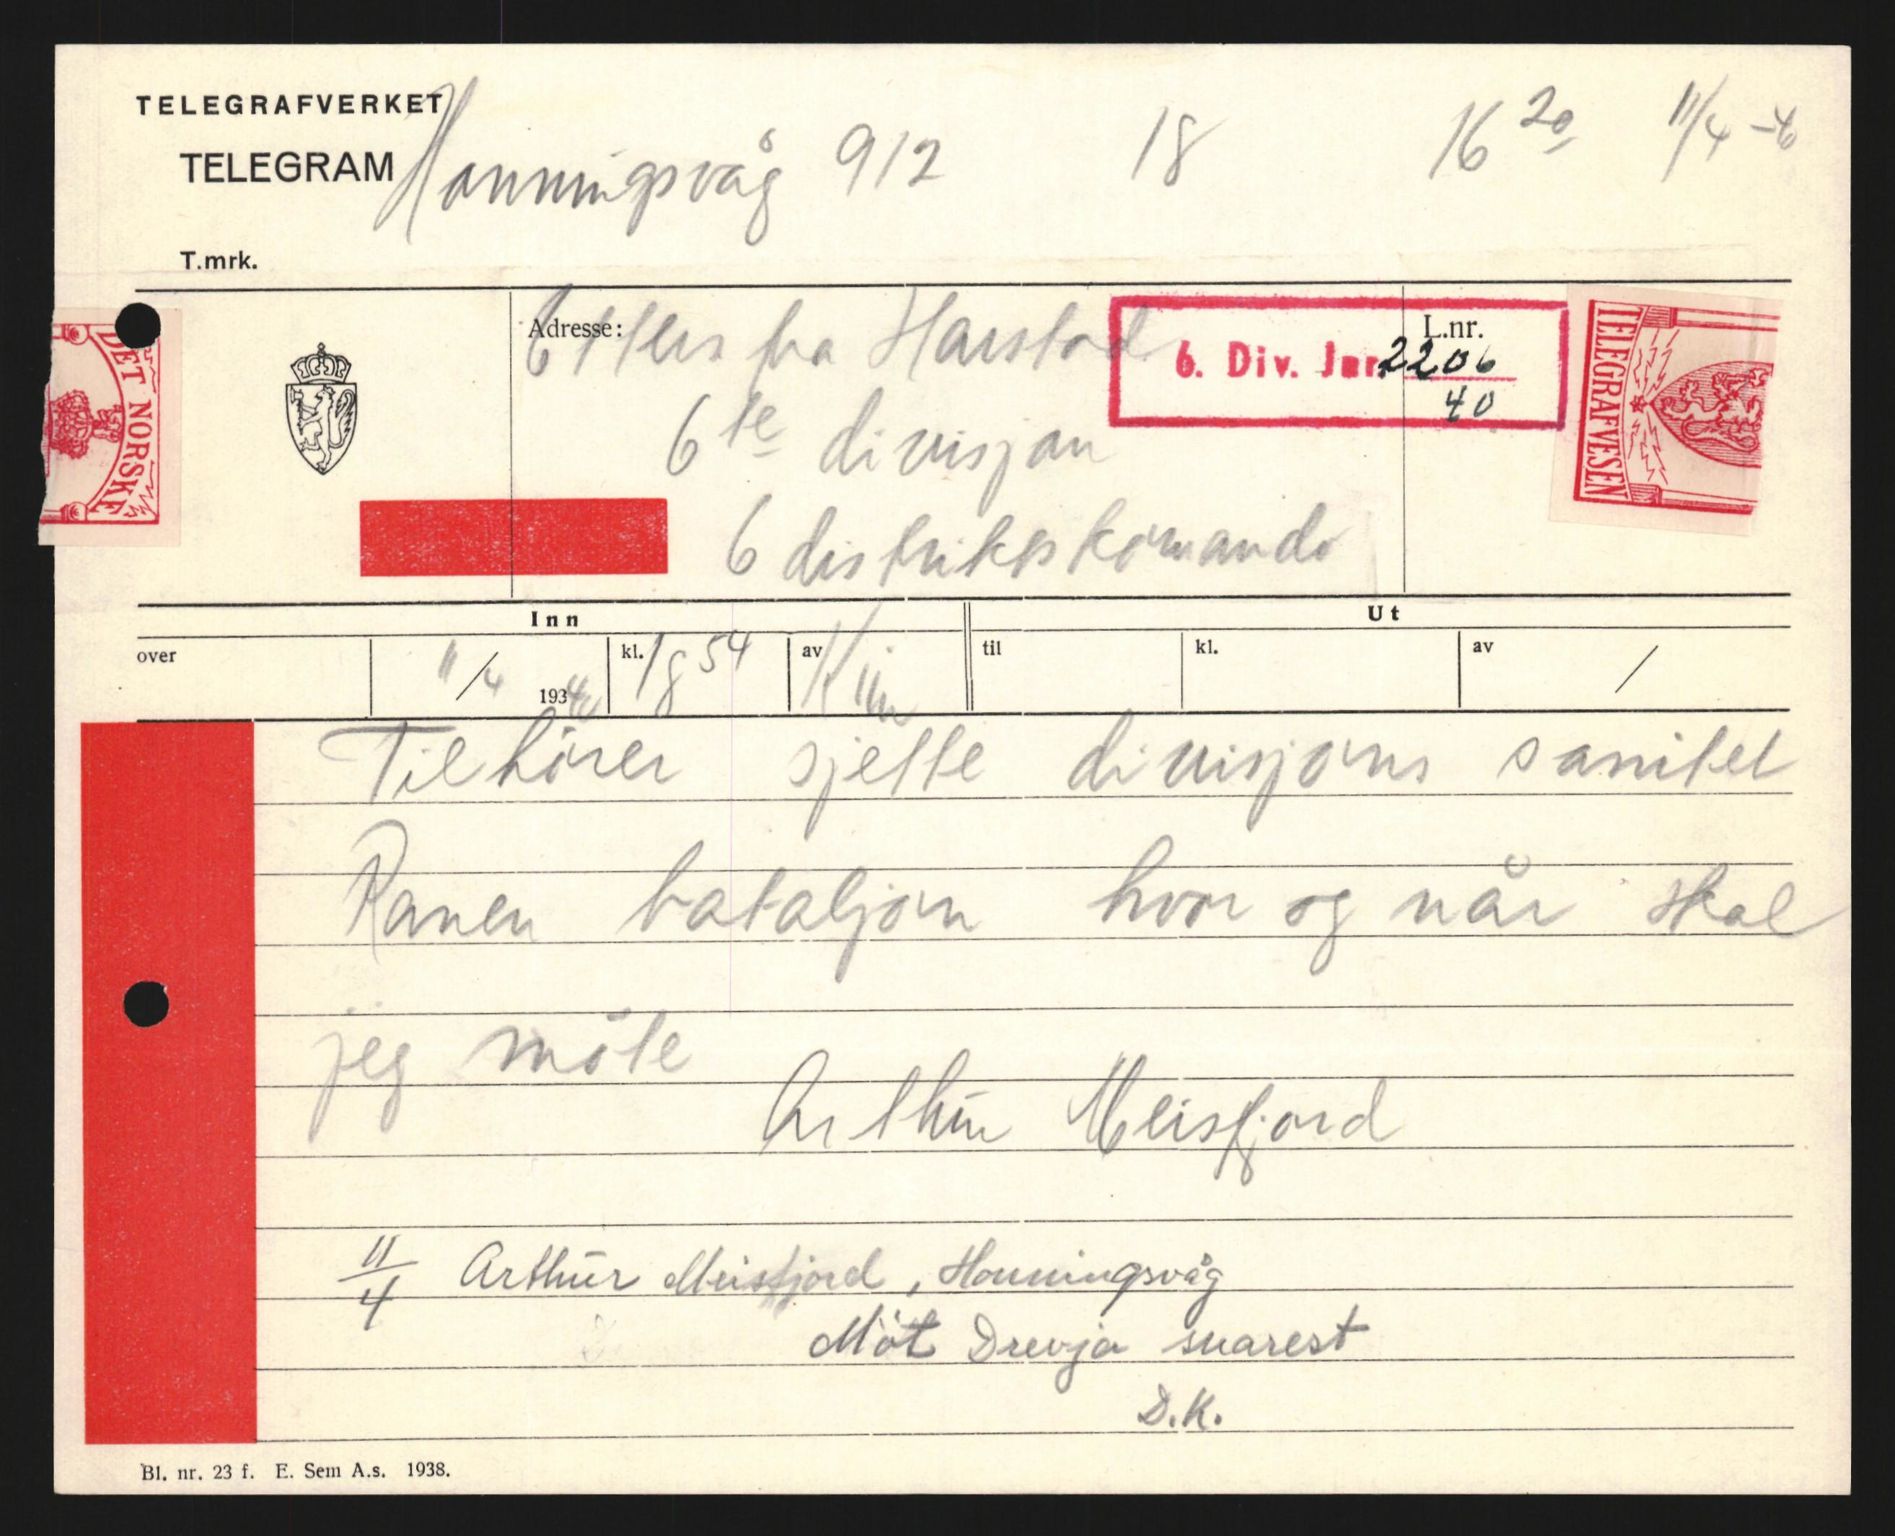 TELEGRAFVERKET
TELEGRAM Honningsvåg 912 18 16 20 11/4 -40
T.mrk.
Adresse: Etters fra Harstad
L.nr.
6. Div. Jnr. 2206
40
6te divisjon
6 distriktskomando
DET NORSKE
TELEGRAFVESEN
Inn Ut
over 11/4 1940 kl. 18 54 av til kl. av /
Tilhörer sjette divisjons sanitet
Ranen bataljon hvor og når skal
jeg möte
Arthur Meisfjord
11/4 Arthur Meisfjord, Honningsvåg
Möt Drevja snarest
D.K.
Bl. nr. 23 f. E. Sem A.s. 1938.